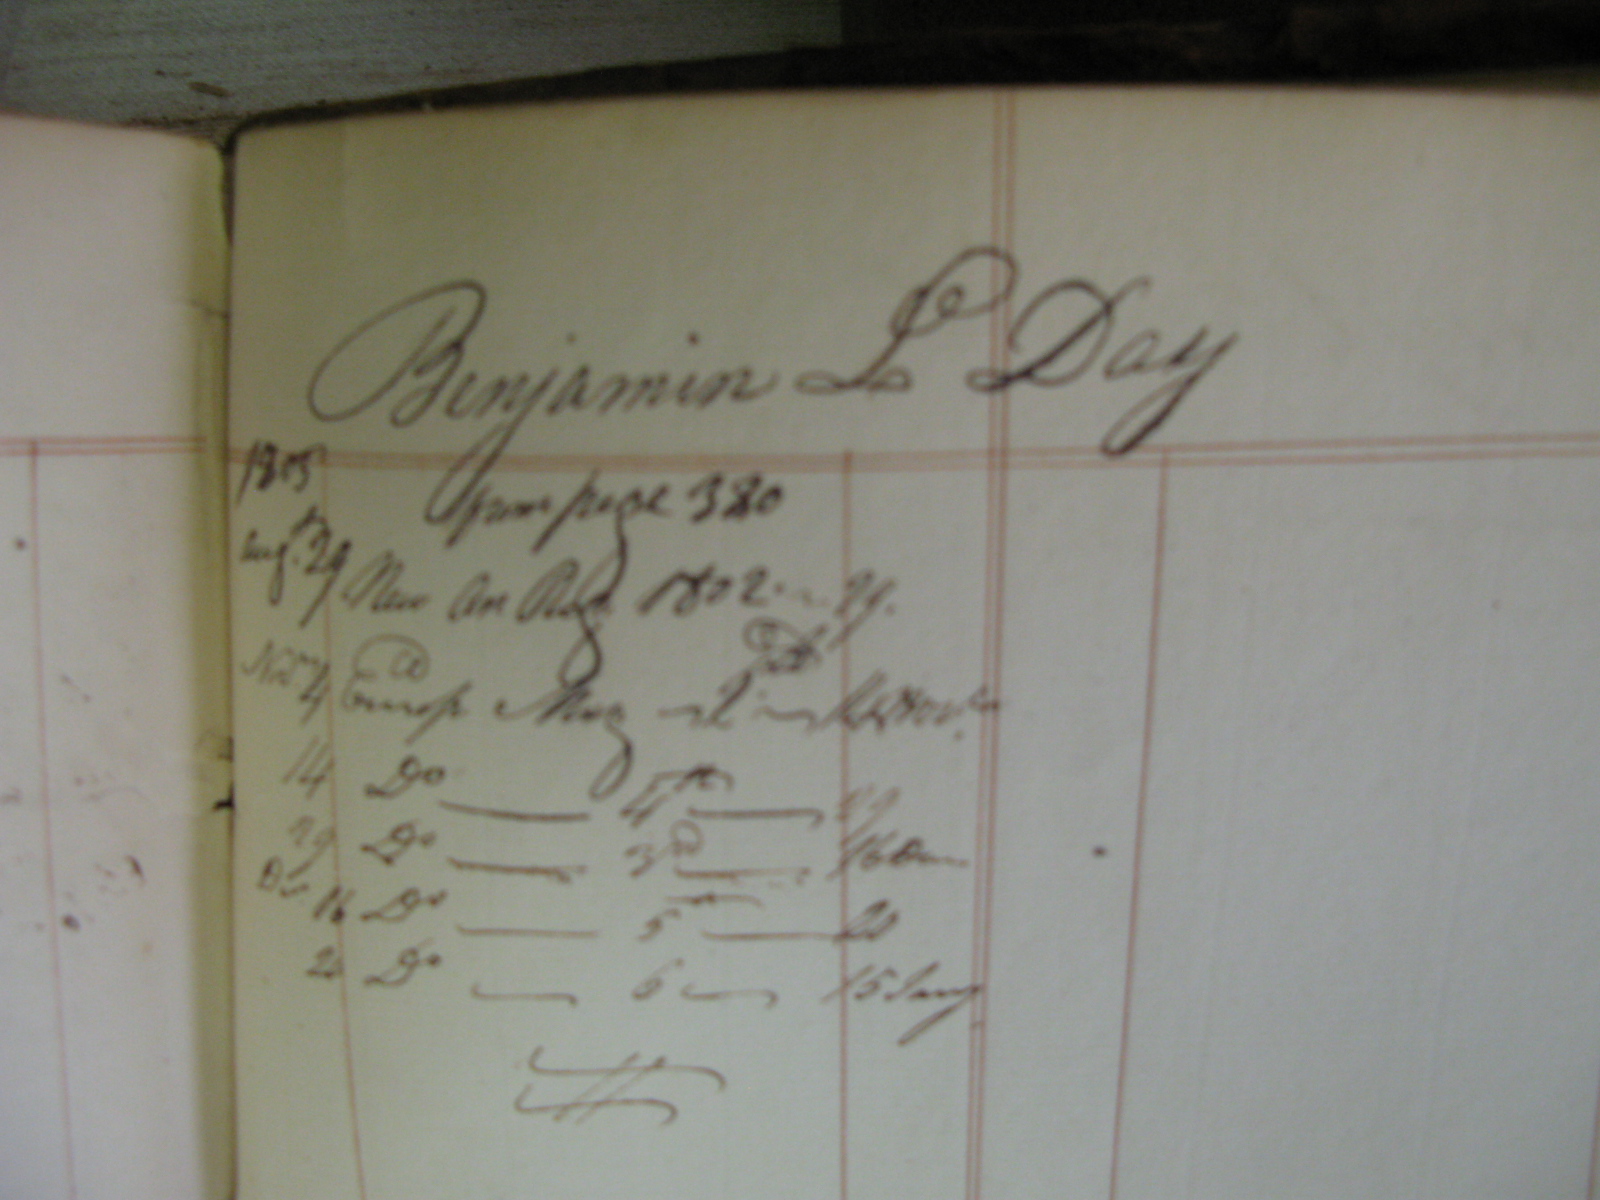 Benjamin L Day
1805
from page 380
Aug. 29 New An Reg 1802 29.
Nov 4 Europ Mag
14 Do 4th 29
29 Do 3rd 16 Dec
Dec 16 Do 5 20
20 Do 6 15 Jany